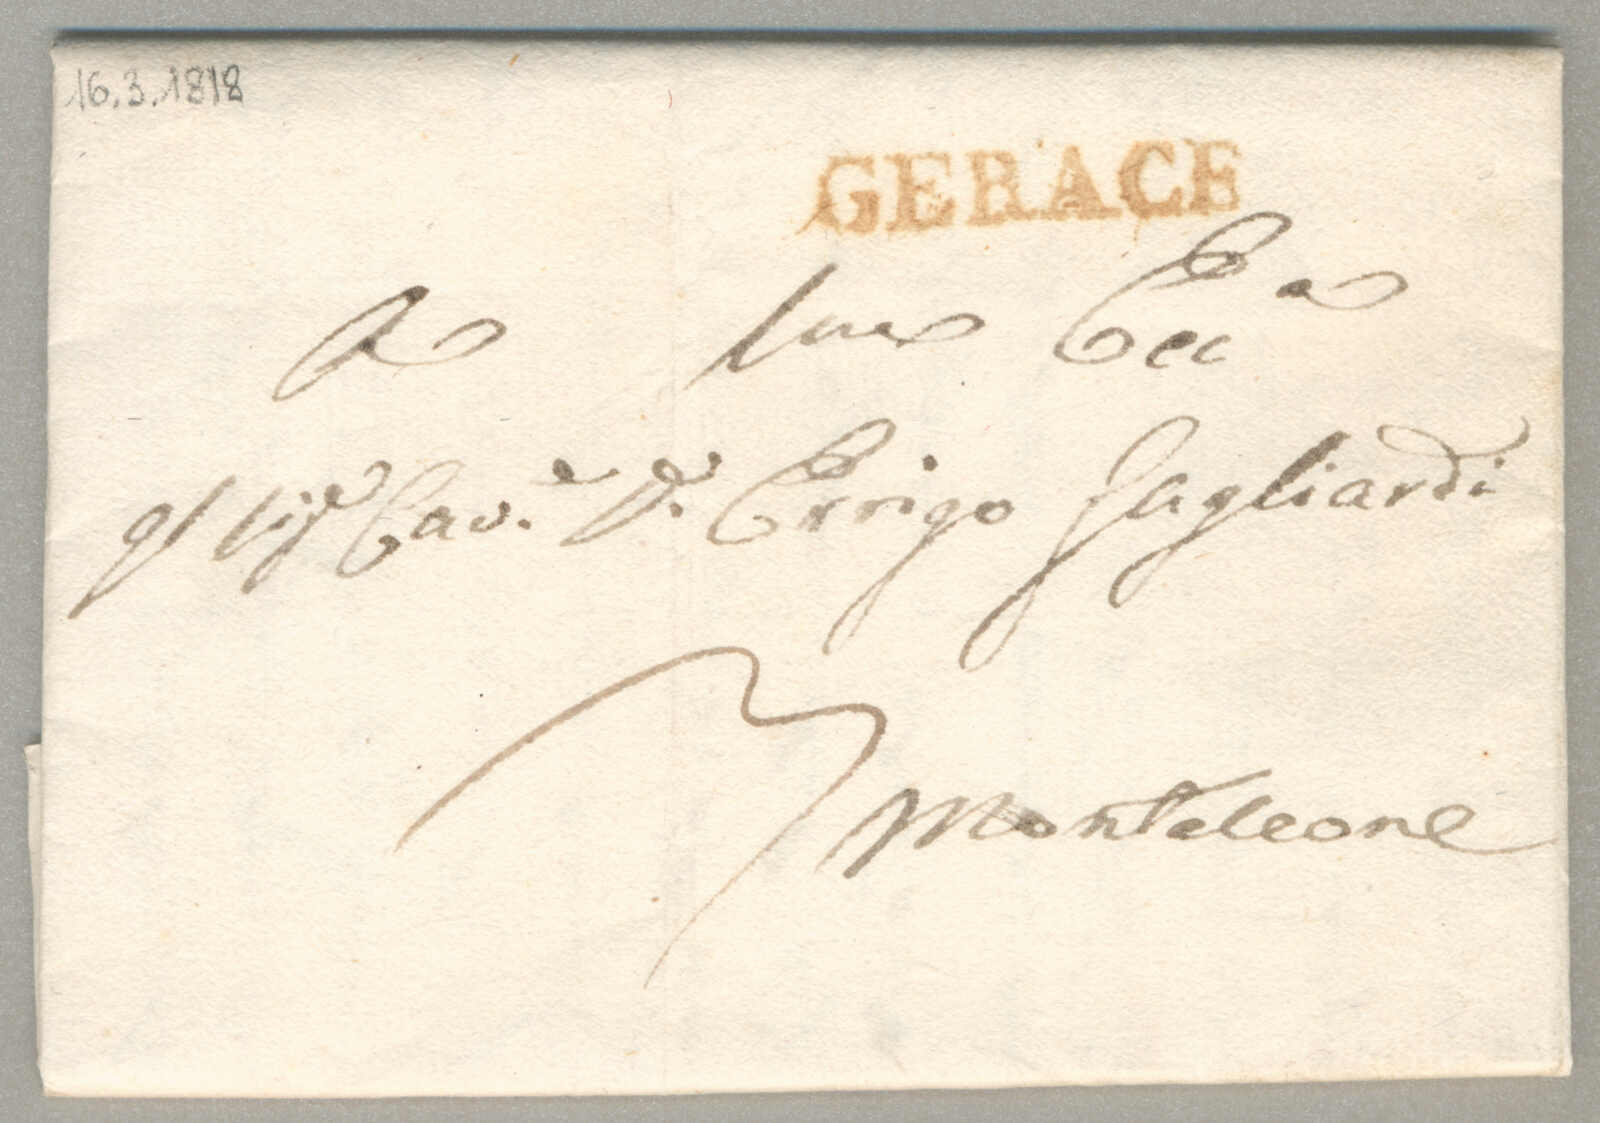 16.3.1818
GERACE
A Sua Ecc.a
Il Sig.r Cav.e D. Errigo Gagliardi
Monteleone